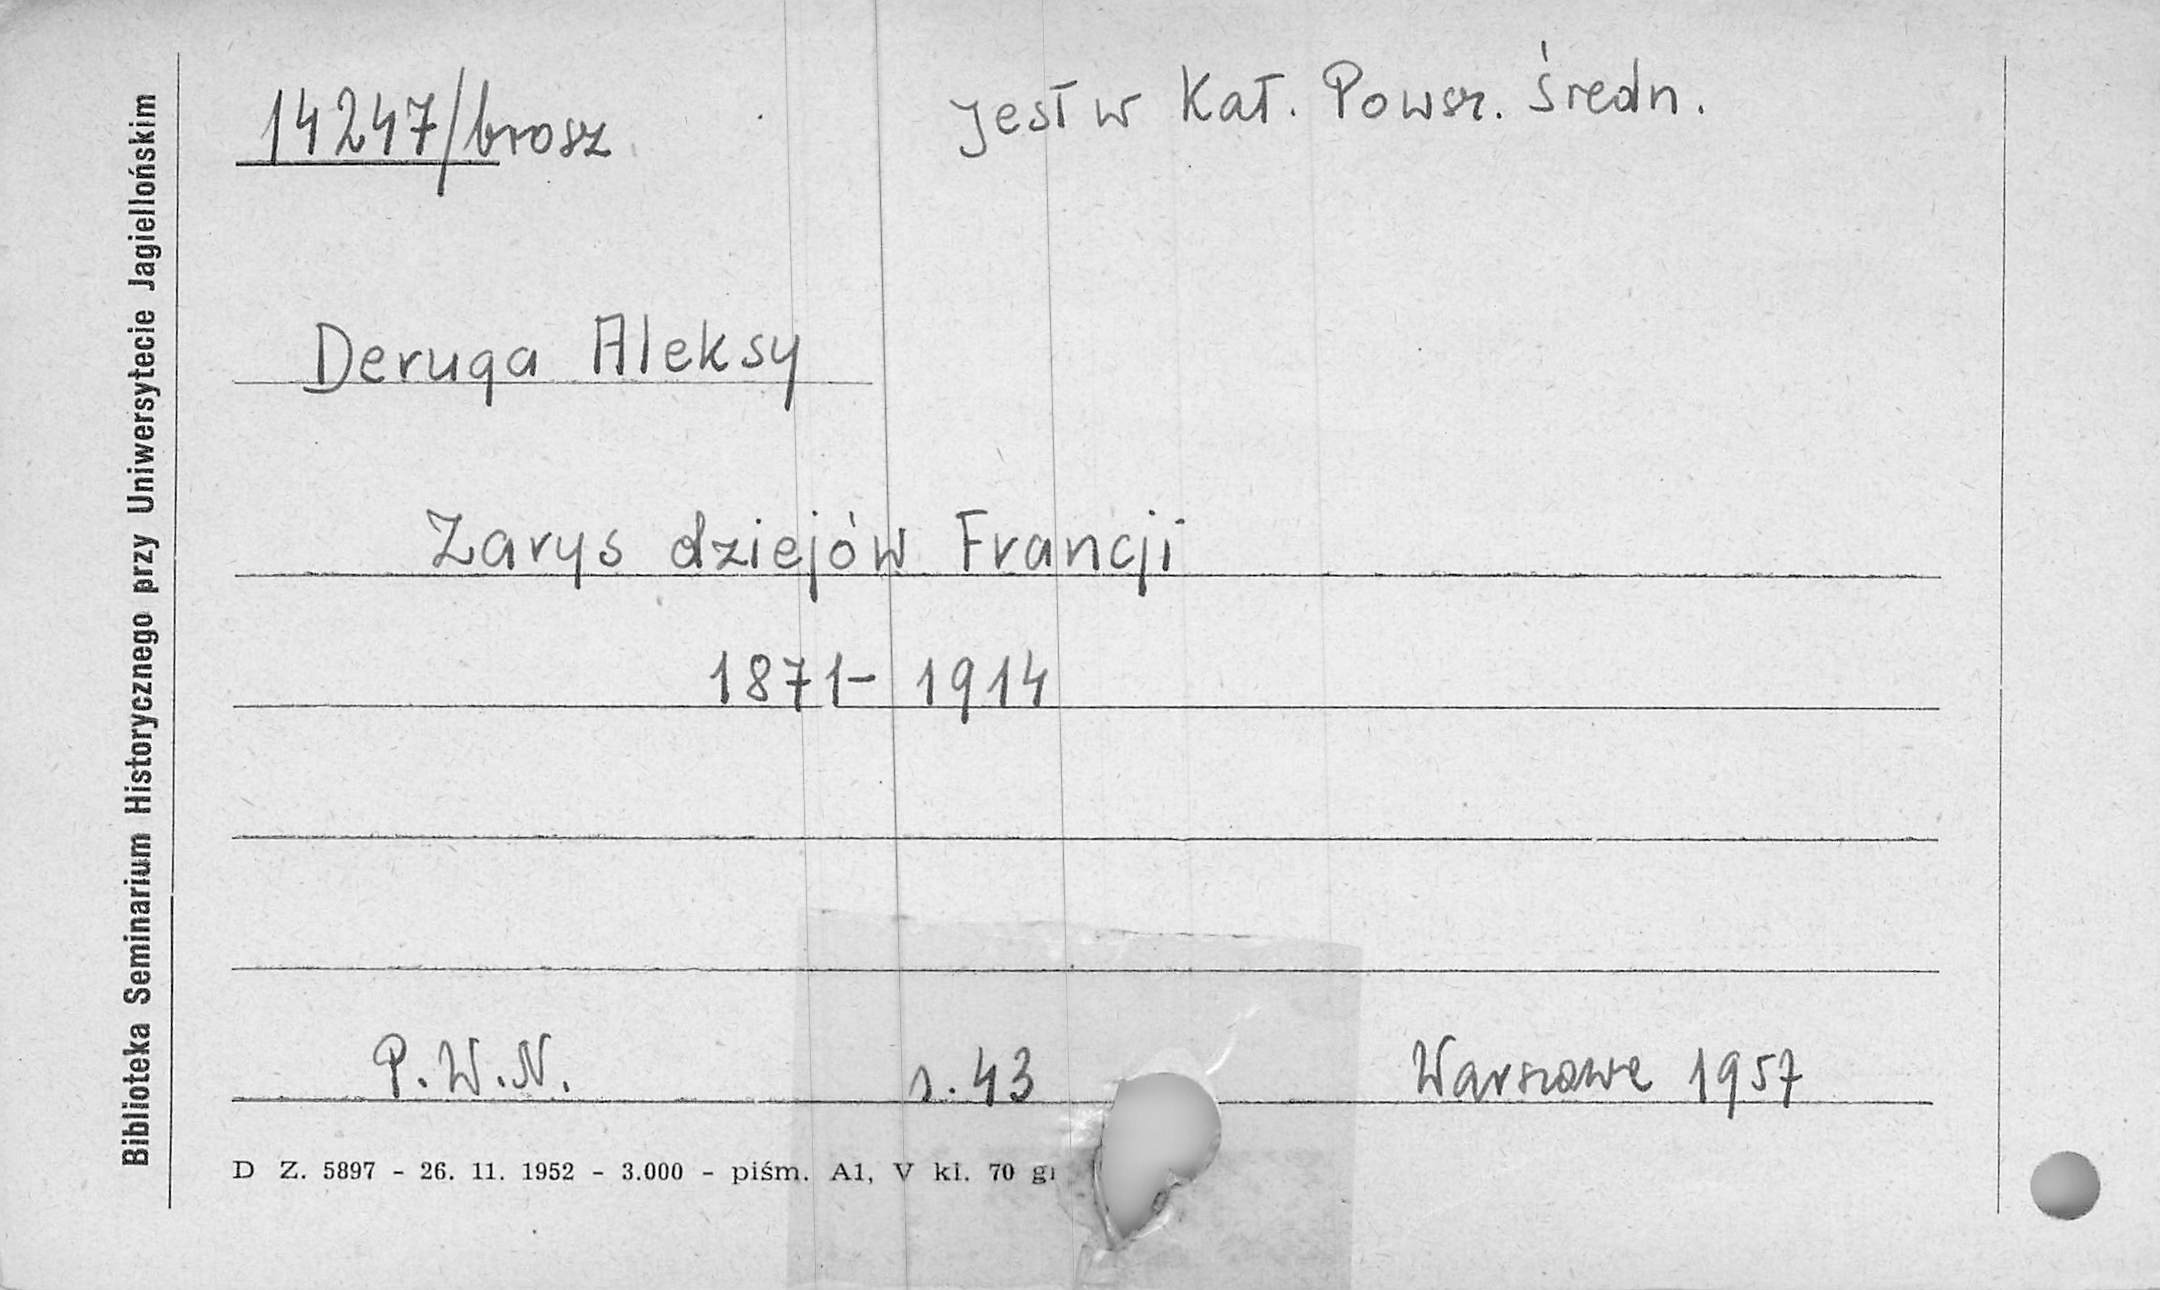 14247/brosz
jest w Kat. Powsz. Średn.
Deruga Aleksy
Zarys dziejów Francji
1871- 1914
P.W.N. s. 43 Warszawa 1957
D Z. 5897 - 26. 11. 1952 - 3.000 - piśm. A1, V kl. 70 gr
Biblioteka Seminarium Historycznego przy Uniwersytecie Jagiellońskim